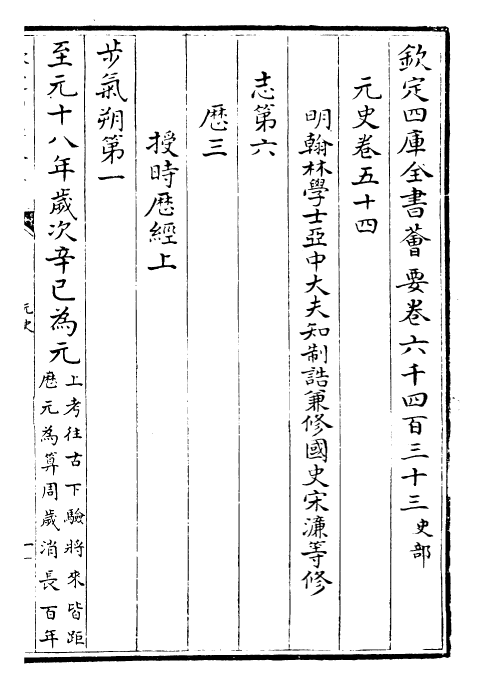 欽定四庫全書薈要卷六千四百三十三 史部
元史卷五十四
明翰林學士亞中大夫知制誥兼修國史宋濂等修
志第六
厯三
授時厯經上
步氣朔第一
至元十八年歲次辛巳為元
上考往古下驗將來皆距
厯元為算周歲消長百年
元史